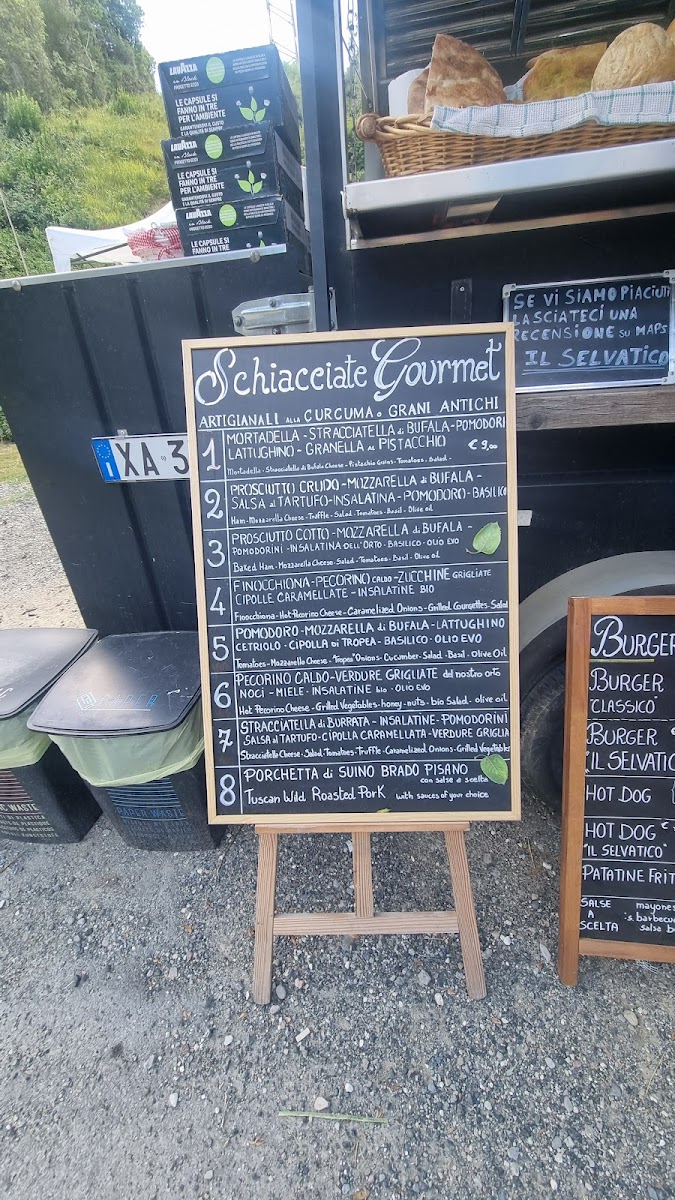 LAVAZZA
in Black
LE CAPSULE SI
FANNO IN TRE
PER L'AMBIENTE
GARANTENDOTI IL GUSTO
E LA QUALITÀ DI SEMPRE
LAVAZZA
LE CAPSULE SI
FANNO IN TRE
PER L'AMBIENTE
LAVAZZA
LE CAPSULE SI
FANNO IN TRE
SE VI SIAMO PIACIUTI
LASCIATECI UNA
RECENSIONE SU MAPS
IL SELVATICO
I
XA 3
Schiacciate Gourmet
ARTIGIANALI ALLA CURCUMA o GRANI ANTICHI
1 MORTADELLA - STRACCIATELLA di BUFALA - POMODORI
LATTUGHINO - GRANELLA AL PISTACCHIO € 9,00
Mortadella - Stracciatella di Bufala Cheese - Pistachio Grains - Tomatoes - Salad -
2 PROSCIUTTO CRUDO - MOZZARELLA di BUFALA -
SALSA al TARTUFO - INSALATINA - POMODORO - BASILICO
Ham - Mozzarella Cheese - Truffle - Salad - Tomatoes - Basil - Olive oil
3 PROSCIUTTO COTTO - MOZZARELLA di BUFALA -
POMODORINI - INSALATINA DELL'ORTO - BASILICO - OLIO EVO
Baked Ham - Mozzarella Cheese - Salad - Tomatoes - Basil - Olive oil
4 FINOCCHIONA - PECORINO CALDO - ZUCCHINE GRIGLIATE
CIPOLLE CARAMELLATE - INSALATINE BIO
Finocchiona - Hot Pecorino Cheese - Caramelized Onions - Grilled Courgettes - Salad
5 POMODORO - MOZZARELLA di BUFALA - LATTUGHINO
CETRIOLO - CIPOLLA DI TROPEA - BASILICO - OLIO EVO
Tomatoes - Mozzarella Cheese - "Tropea" Onions - Cucumber - Salad - Basil - Olive Oil
6 PECORINO CALDO - VERDURE GRIGLIATE del nostro orto
NOCI - MIELE - INSALATINE bio - OLIO EVO
Hot Pecorino Cheese - Grilled Vegetables - honey - nuts - bio Salad - olive oil
7 STRACCIATELLA di BURRATA - INSALATINE - POMODORINI
SALSA al TARTUFO - CIPOLLA CARAMELLATA - VERDURE GRIGLIA
Stracciatella Cheese - Salad - Tomatoes - Truffle - Caramelized Onions - Grilled Vegetables
8 PORCHETTA di SUINO BRADO PISANO
con salse a scelta
Tuscan Wild Roasted Pork with sauces of your choice
BURGER
BURGER
"CLASSICO"
BURGER
"IL SELVATICO
HOT DOG
HOT DOG €
"IL SELVATICO"
PATATINE FRIT
SALSE
A
SCELTA
mayones
s. barbecue
salsa b